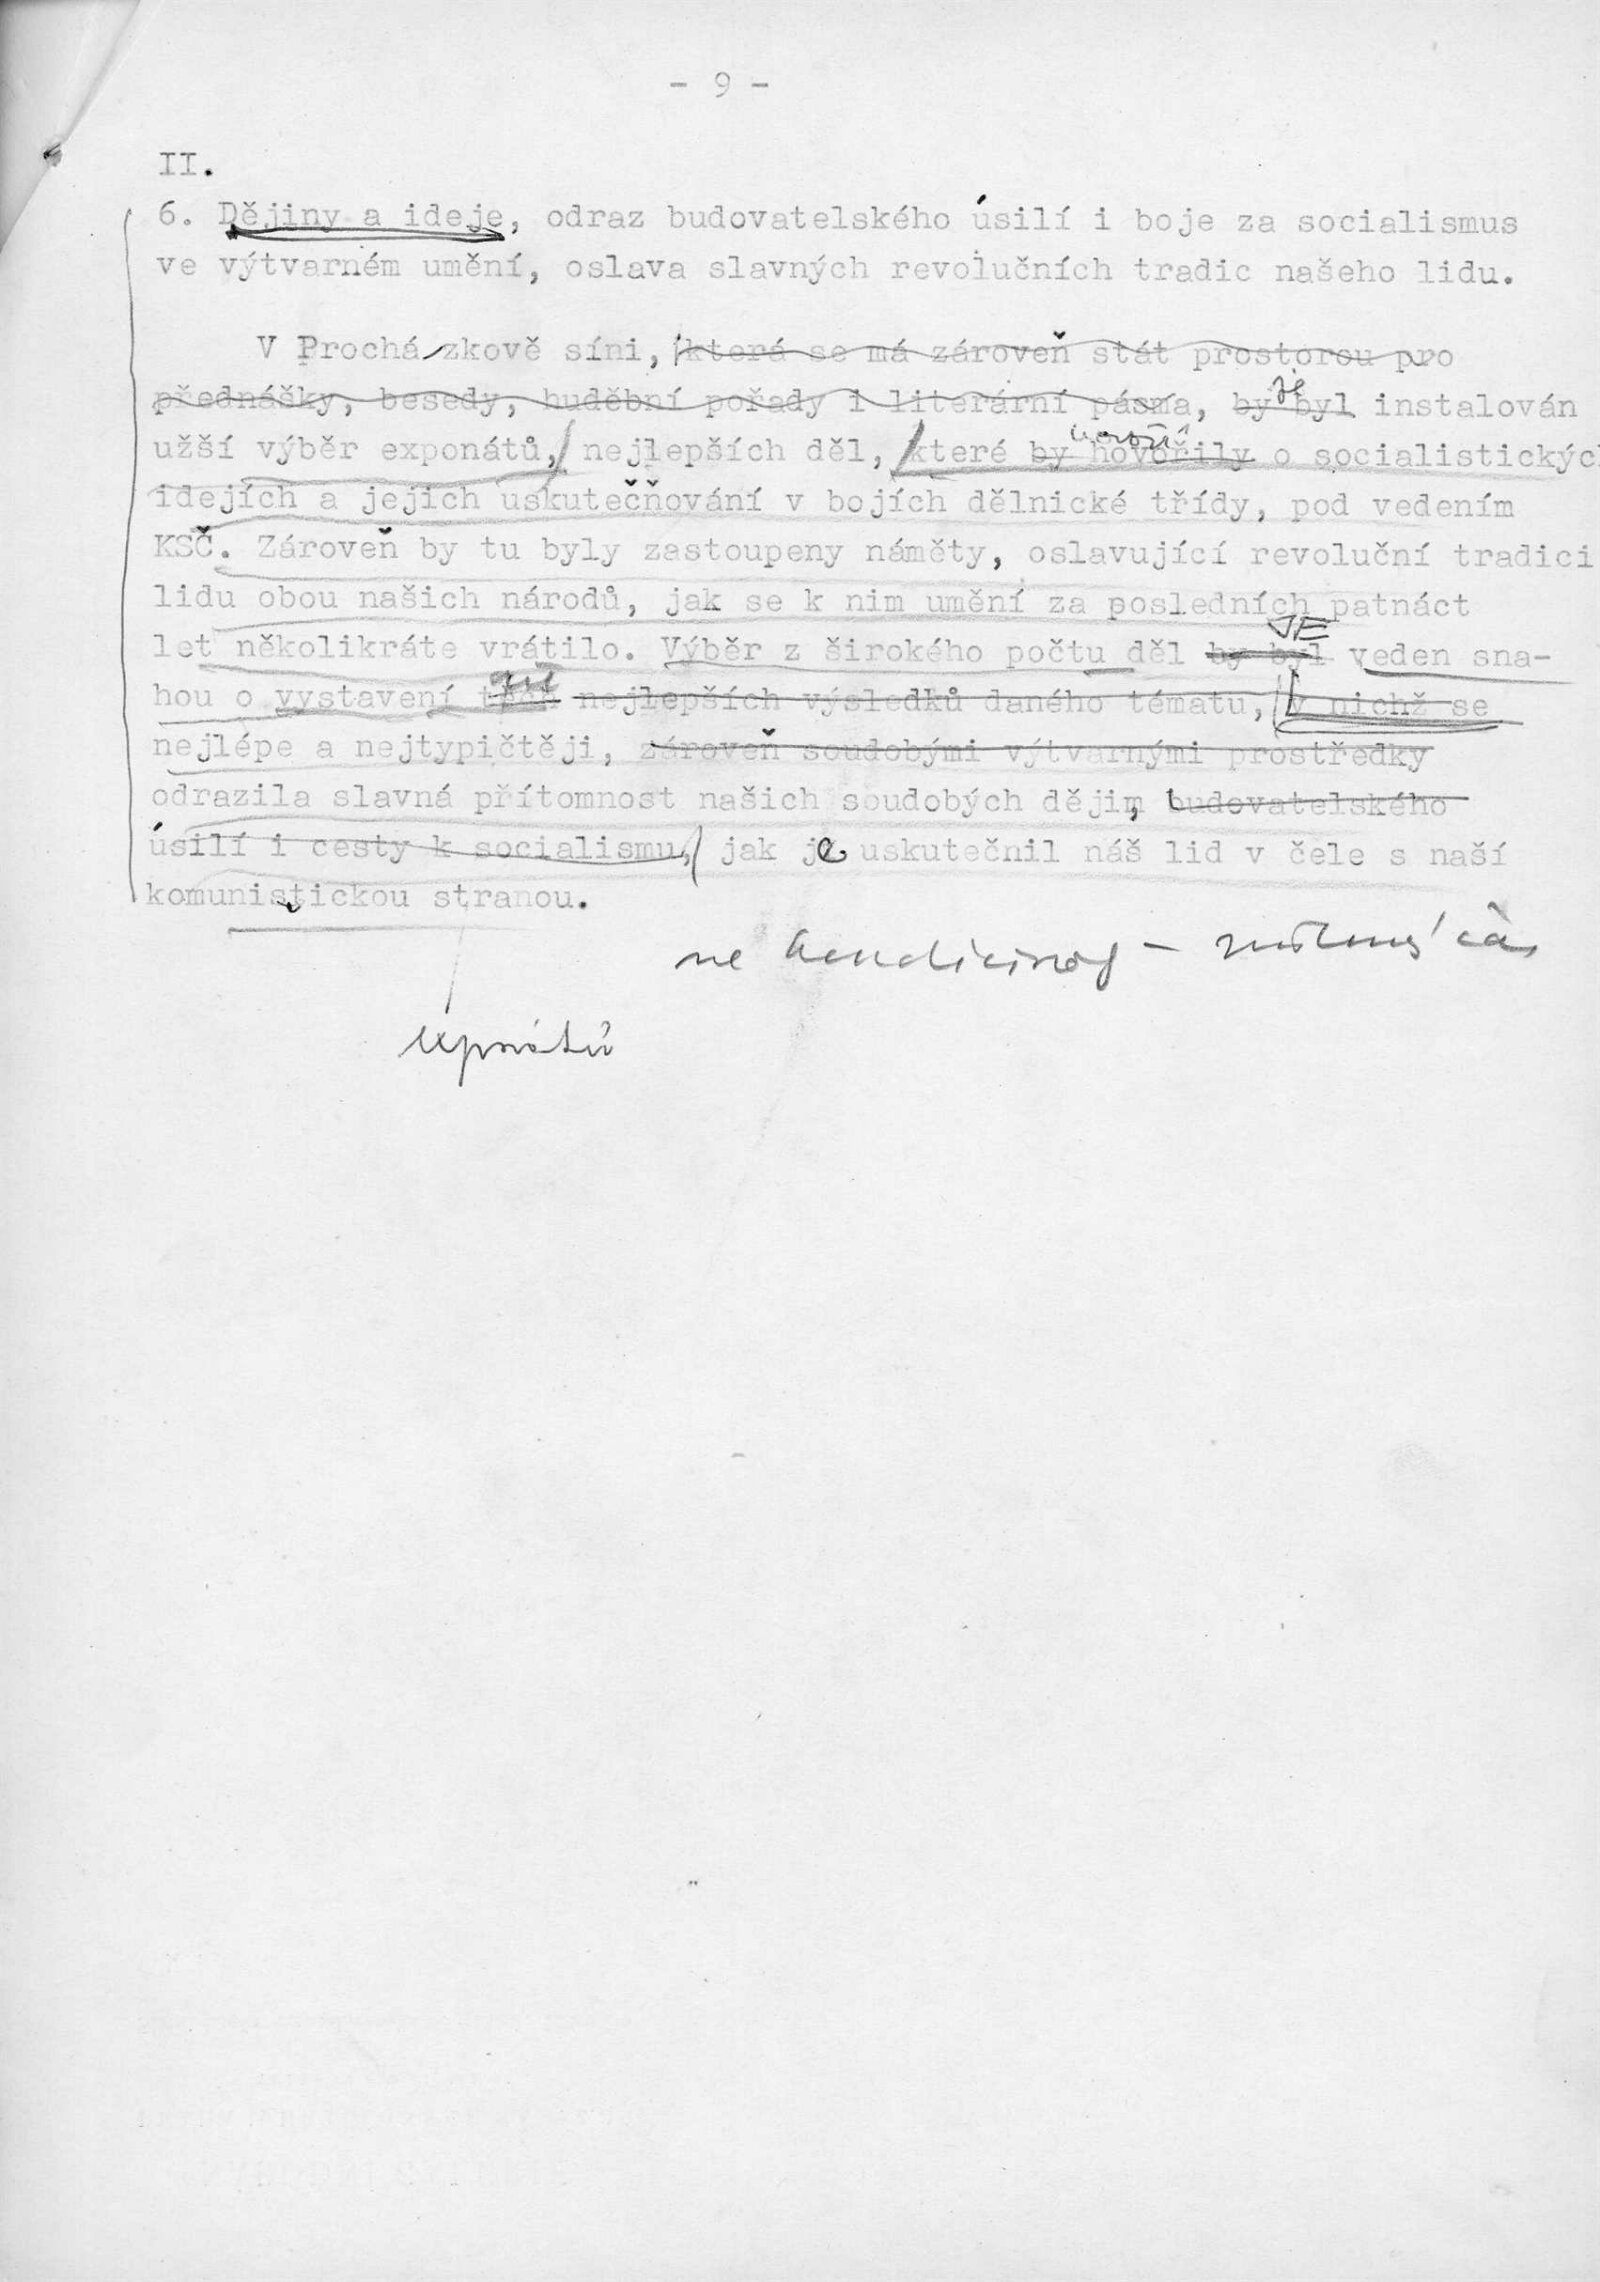 - 9 -
II.
6. Dějiny a ideje, odraz budovatelského úsilí i boje za socialismus
ve výtvarném umění, oslava slavných revolučních tradic našeho lidu.
V Procházkově síni, která se má zároveň stát prostorou pro
přednášky, besedy, hudební pořady i literární pásma, by byl instalován
je
užší výběr exponátů, nejlepších děl, které by hovořily o socialistických
hovoří
idejích a jejich uskutečňování v bojích dělnické třídy, pod vedením
KSČ. Zároveň by tu byly zastoupeny náměty, oslavující revoluční tradici
lidu obou našich národů, jak se k nim umění za posledních patnáct
let několikráte vrátilo. Výběr z širokého počtu děl by byl veden sna-
JE
hou o vystavení těch nejlepších výsledků daného tématu, v nichž se
nejlépe a nejtypičtěji, zároveň soudobými výtvarnými prostředky
odrazila slavná přítomnost našich soudobých dějin, budovatelského
úsilí i cesty k socialismu, jak je uskutečnil náš lid v čele s naší
komunistickou stranou.
ne